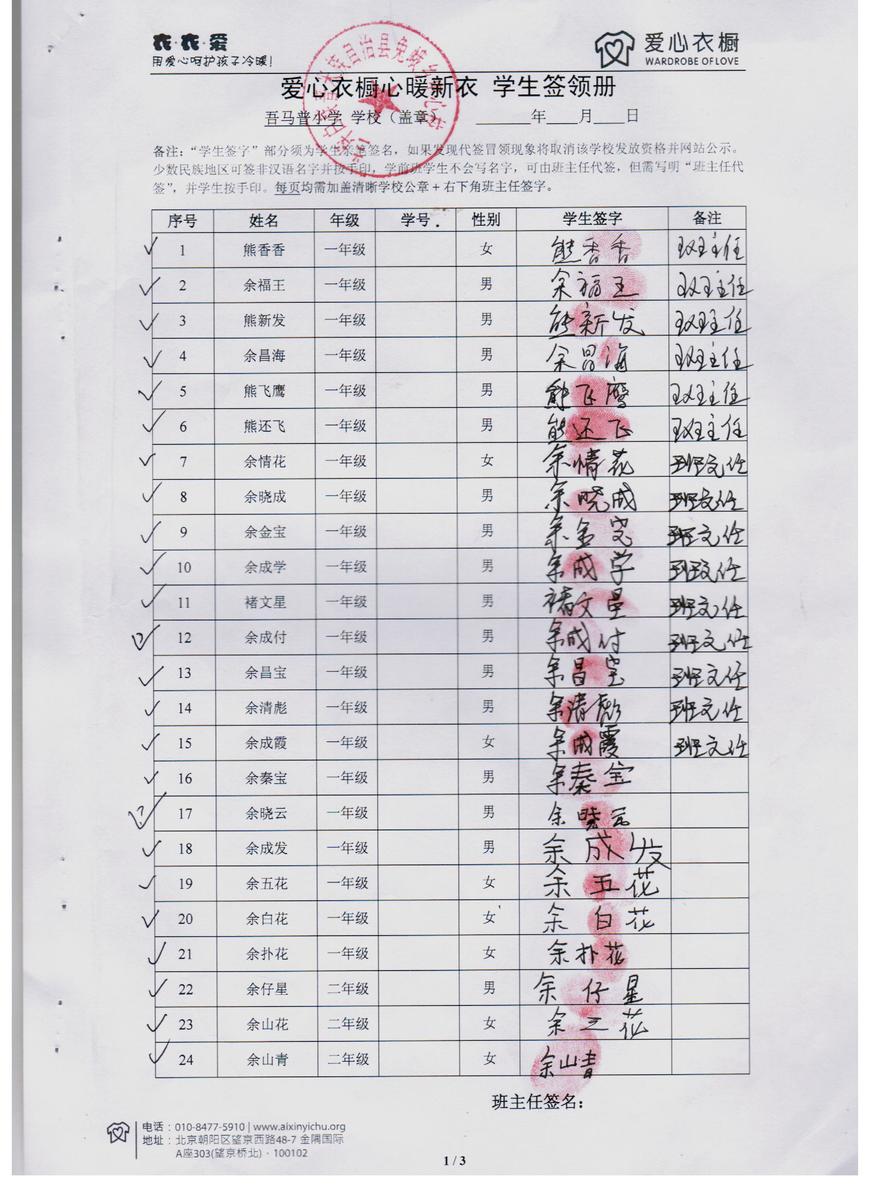 衣·衣·爱
用爱心呵护孩子冷暖!
爱心衣橱
WARDROBE OF LOVE
爱心衣橱心暖新衣 学生签领册
吾马普小学 学校(盖章) ______年____月____日
备注:“学生签字”部分须为学生亲笔签名,如果发现代签冒领现象将取消该学校发放资格并网站公示。
少数民族地区可签非汉语名字并按手印,学前班学生不会写名字,可由班主任代签,但需写明“班主任代
签”,并学生按手印。每页均需加盖清晰学校公章+右下角班主任签字。
序号 姓名 年级 学号 性别 学生签字 备注
1 熊香香 一年级 女 熊香香 班主任
2 余福王 一年级 男 余福王 班主任
3 熊新发 一年级 男 熊新发 班主任
4 余昌海 一年级 男 余昌海 班主任
5 熊飞鹰 一年级 男 熊飞鹰 班主任
6 熊还飞 一年级 男 熊还飞 班主任
7 余情花 一年级 女 余情花 班文任
8 余晓成 一年级 男 余晓成 班文任
9 余金宝 一年级 男 余金宝 班文任
10 余成学 一年级 男 余成学 班文任
11 褚文星 一年级 男 褚文星 班文任
12 余成付 一年级 男 余成付 班文任
13 余昌宝 一年级 男 余昌宝 班文任
14 余清彪 一年级 男 余清彪 班文任
15 余成霞 一年级 女 余成霞 班文任
16 余秦宝 一年级 男 余秦宝
17 余晓云 一年级 男 余晓云
18 余成发 一年级 男 余成发
19 余五花 一年级 女 余五花
20 余白花 一年级 女 余白花
21 余扑花 一年级 女 余扑花
22 余仔星 二年级 男 余仔星
23 余山花 二年级 女 余三花
24 余山青 二年级 女 余山青
班主任签名:
电话:010-8477-5910 | www.aixinyichu.org
地址:北京朝阳区望京西路48-7 金隅国际
A座303(望京桥北)·100102
1 / 3